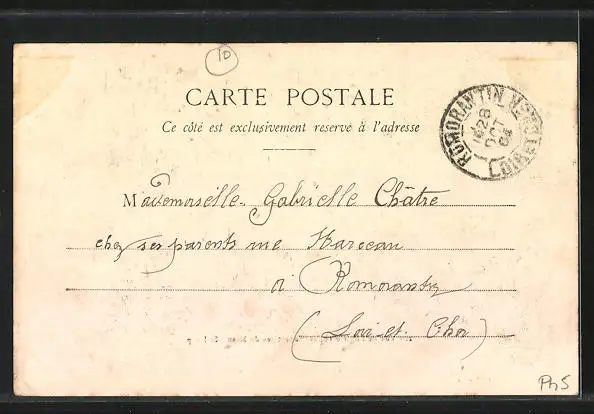 10
CARTE POSTALE
Ce côté est exclusivement reservé à l'adresse
ROMORANTIN
28
OCT
04
Mademoiselle Gabrielle Châtre
chez ses parents rue
à Romorantin
(Loir-et-Cher)
Ph5